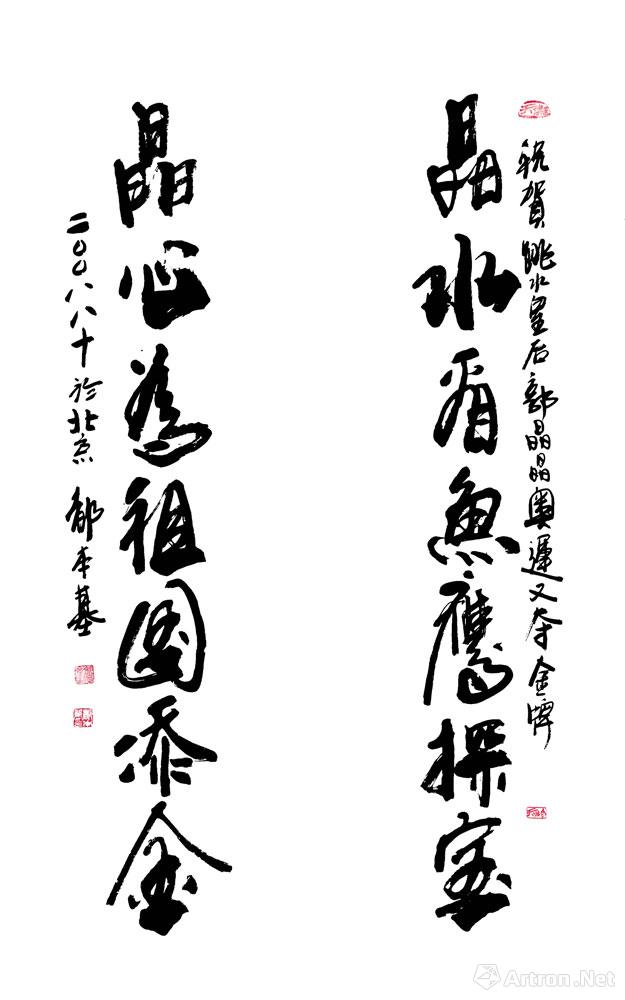 祝賀跳水皇后郭晶晶奧運又夺金牌
晶水看魚鷹探宝
晶心為祖国添金
二〇〇八八十於北京 都本基
Artron.Net